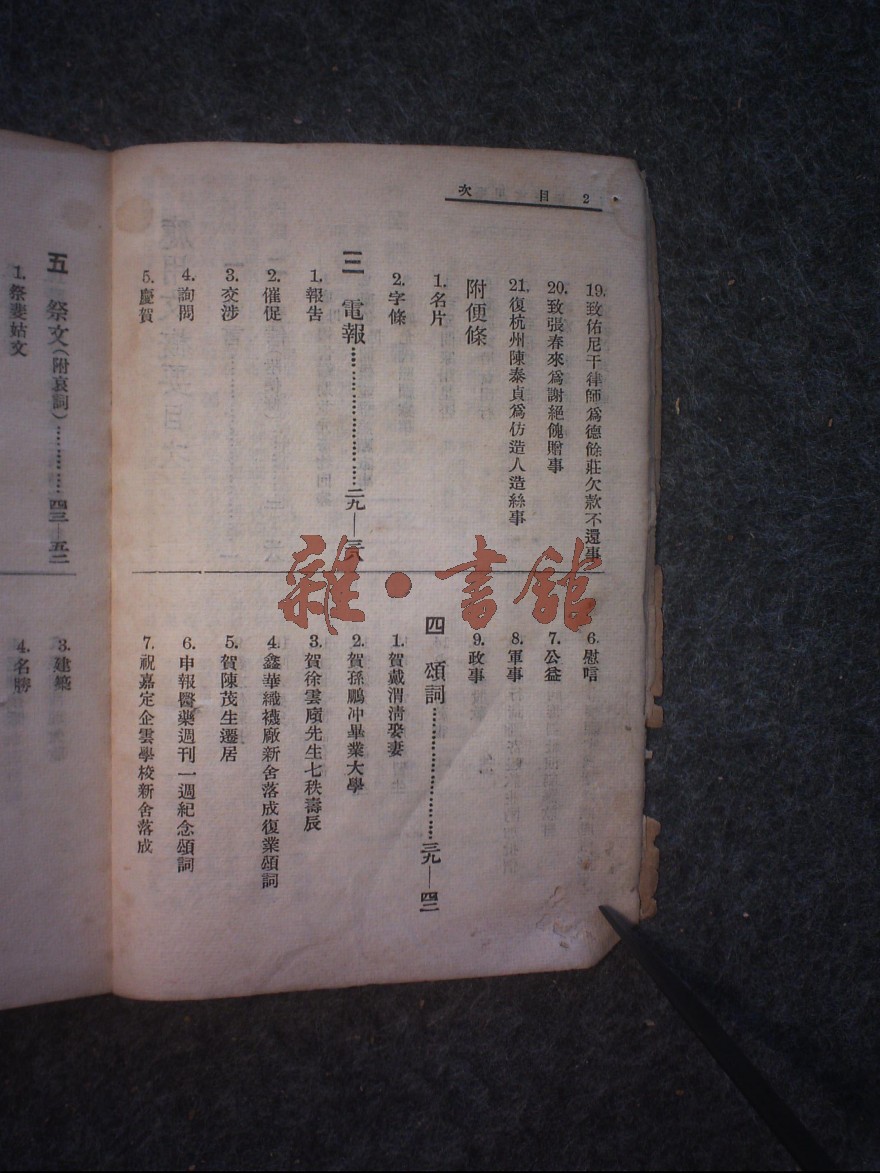 2 目次
19. 致佑尼干律師爲德餘莊欠款不還事
20. 致張春來爲謝絕餽贈事
21. 復杭州陳泰貞爲仿造人造絲事
附便條
1. 名片
2. 字條
三 電報……二九—三八
1. 報告
2. 催促
3. 交涉
4. 詢問
5. 慶賀
6. 慰唁
7. 公益
8. 軍事
9. 政事
四 頌詞……三九—四二
1. 賀戴渭清娶妻
2. 賀孫鵬冲畢業大學
3. 賀徐雲廎先生七秩壽辰
4. 鑫華織襪廠新舍落成復業頌詞
5. 賀陳茂生遷居
6. 申報醫藥週刊一週紀念頌詞
7. 祝嘉定企雲學校新舍落成
五 祭文(附哀詞)……四三—五二
1. 祭斐姑文
3. 建築
4. 名勝
雜·書館